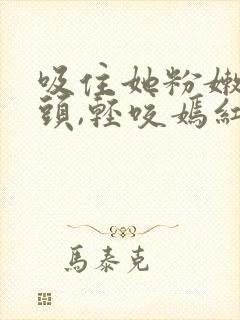 吸住她粉嫩
頭,輕咬嫣紅
馬泰克